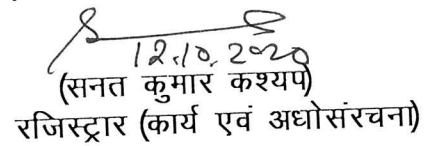 12.10.2020
(सनत कुमार कश्यप)
रजिस्ट्रार (कार्य एवं अधोसंरचना)